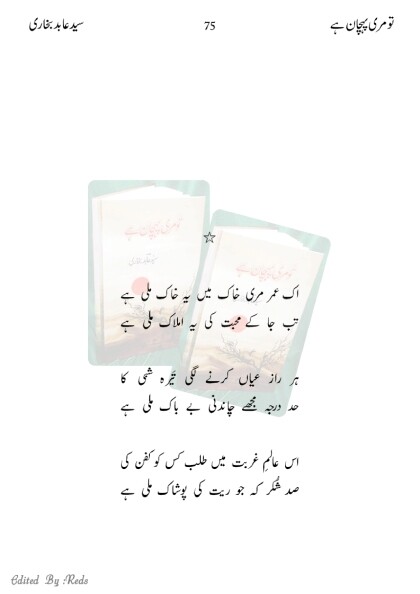 تو مری پہچان ہے
75
سید عابد بخاری
تو مری پہچان ہے
تو مری پہچان ہے
اک عمر مری خاک میں یہ خاک ملی ہے
تب جا کے محبت کی یہ املاک ملی ہے
ہر راز عیاں کرنے لگی تیرہ شبی کا
حد درجہ مجھے چاندنی بے باک ملی ہے
اس عالمِ غربت میں طلب کس کو کفن کی
صد شُکر کہ جو ریت کی پوشاک ملی ہے
Edited By Reds